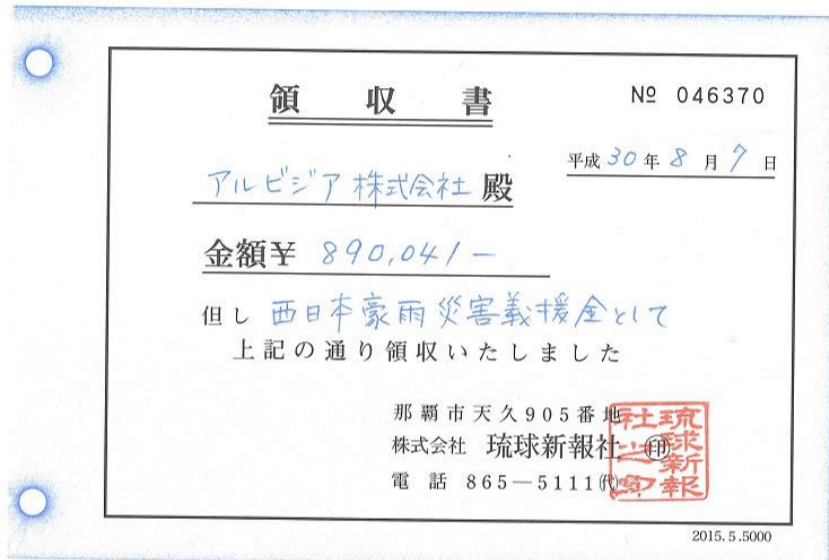 領収書
№ 046370
平成30年8月7日
アルビジア株式会社 殿
金額¥ 890,041-
但し 西日本豪雨災害義援金として
上記の通り領収いたしました
那覇市天久905番地
株式会社 琉球新報社 ㊞
電話 865-5111㈹
琉球新報社之印
2015.5.5000